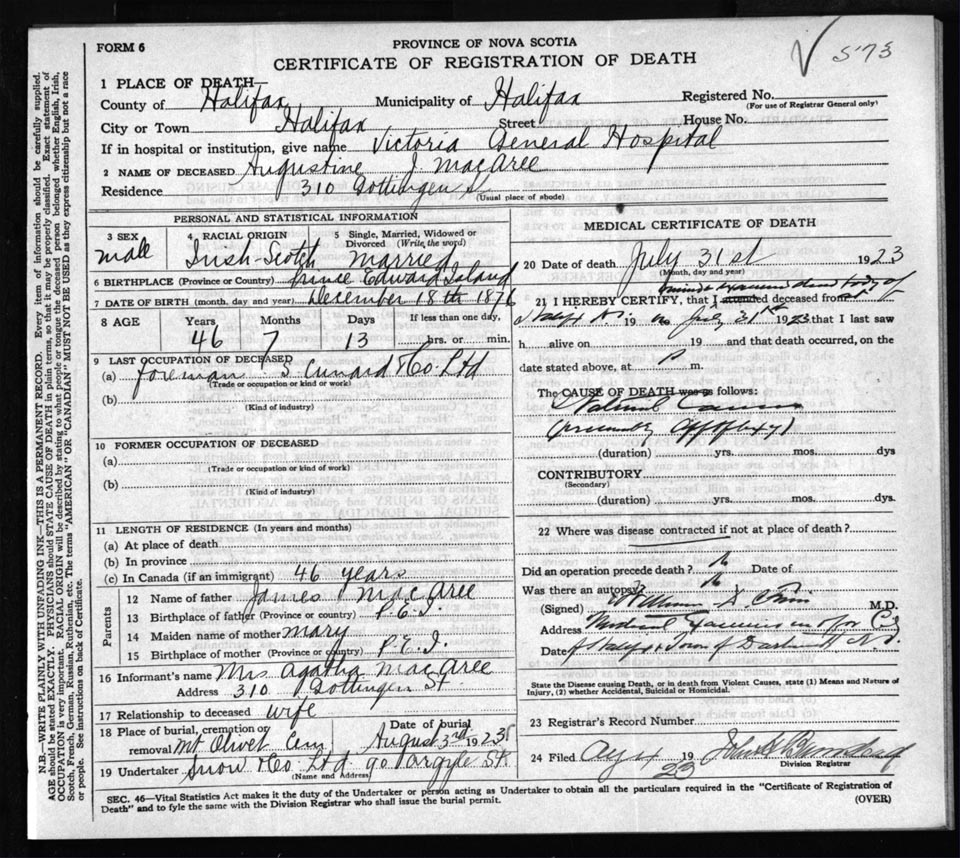 FORM 6
PROVINCE OF NOVA SCOTIA
CERTIFICATE OF REGISTRATION OF DEATH
573
1 PLACE OF DEATH—
County of Halifax Municipality of Halifax Registered No.
(For use of Registrar General only)
City or Town Halifax Street House No.
If in hospital or institution, give name Victoria General Hospital
2 NAME OF DECEASED Augustine J. MacAree
Residence 310 Gottingen St
(Usual place of abode)
PERSONAL AND STATISTICAL INFORMATION
3 SEX
Male
4 RACIAL ORIGIN
Irish-Scotch
5 Single, Married, Widowed or Divorced (Write the word)
Married
6 BIRTHPLACE (Province or Country) Prince Edward Island
7 DATE OF BIRTH (month, day and year) December 18th 1876
8 AGE Years Months Days If less than one day,
46 7 13 hrs. or min.
9 LAST OCCUPATION OF DECEASED
(a) Foreman S Cunard & Co. Ltd
(Trade or occupation or kind of work)
(b)
(Kind of industry)
10 FORMER OCCUPATION OF DECEASED
(a)
(Trade or occupation or kind of work)
(b)
(Kind of industry)
11 LENGTH OF RESIDENCE (In years and months)
(a) At place of death
(b) In province
(c) In Canada (if an immigrant) 46 years
Parents
12 Name of father James MacAree
13 Birthplace of father (Province or country) P.E.I.
14 Maiden name of mother Mary
15 Birthplace of mother (Province or country) P.E.I.
16 Informant's name Mrs Agatha MacAree
Address 310 Gottingen St.
17 Relationship to deceased wife
18 Place of burial, cremation or removal Mt Olivet Cem Date of burial August 3rd 1923
19 Undertaker Snow & Co. Ltd 90 Argyle St
(Name and Address)
MEDICAL CERTIFICATE OF DEATH
20 Date of Death July 31st 1923
(Month, day and year)
21 I HEREBY CERTIFY, that I attended deceased from
19 July 31st 1923 that I last saw
h alive on 19 and that death occurred, on the
date stated above, at m.
The CAUSE OF DEATH was as follows:
Natural Causes
(presumably Apoplexy)
(duration) yrs. mos. dys
CONTRIBUTORY
(Secondary)
(duration) yrs. mos. dys.
22 Where was disease contracted if not at place of death?
Did an operation precede death? Date of
Was there an autopsy?
(Signed) William D. M.D.
Address Medical Examiner for City
Date of Halifax & Town of Dartmouth N.S.
State the Disease causing Death, or in death from Violent Causes, state (1) Means and Nature of Injury, (2) whether Accidental, Suicidal or Homicidal.
23 Registrar's Record Number
24 Filed Aug 4 1923 John
Division Registrar
SEC. 46—Vital Statistics Act makes it the duty of the Undertaker or person acting as Undertaker to obtain all the particulars required in the "Certificate of Registration of
Death" and to fyle the same with the Division Registrar who shall issue the burial permit.
(OVER)
N.B.—WRITE PLAINLY WITH UNFADING INK—THIS IS A PERMANENT RECORD. Every item of information should be carefully supplied.
AGE should be stated EXACTLY. PHYSICIANS should STATE CAUSE OF DEATH in plain terms, so that it may be properly classified. Exact statement of
OCCUPATION is very important. RACIAL ORIGIN will be described by stating to what people or tongue the deceased person belonged whether English, Irish,
Scotch, French, German, Russian, Ruthenian, etc. The terms "AMERICAN" OR "CANADIAN" MUST NOT BE USED as they express citizenship but not a race
or people. See instructions on back of Certificate.